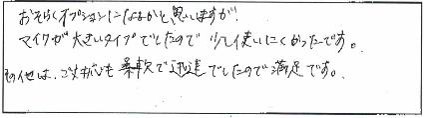 おそらくオプションになるかと思いますが、
マイクが大きいタイプでしたので少し使いにくかったです。
その他は、ご対応も柔軟で迅速でしたので満足です。